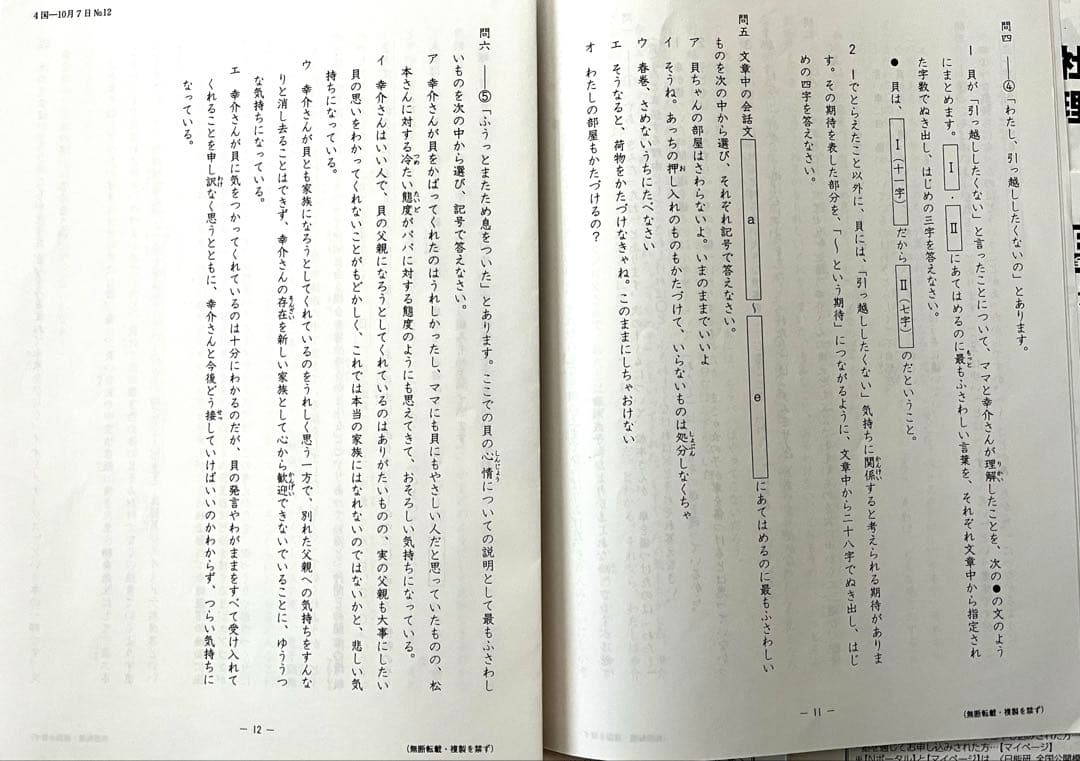 問四 ――④「わたし、引っ越ししたくないの」とあります。
1 貝が「引っ越ししたくない」と言ったことについて、ママと幸介さんが理解したことを、次の●の文のよう
にまとめます。 Ⅰ ・ Ⅱ にあてはめるのに最もふさわしい言葉を、それぞれ文章中から指定され
た字数でぬき出し、はじめの三字を答えなさい。
● 貝は、 Ⅰ(十一字) だから Ⅱ(七字) のだということ。
2 1でとらえたこと以外に、貝には、「引っ越ししたくない」気持ちに関係すると考えられる期待がありま
す。その期待を表した部分を、「〜という期待」につながるように、文章中から二十八字でぬき出し、はじ
めの四字を答えなさい。
問五 文章中の会話文 a 〜 e にあてはめるのに最もふさわしい
ものを次の中から選び、それぞれ記号で答えなさい。
ア 貝ちゃんの部屋はさわらないよ。いまのままでいいよ
イ そうね。あっちの押し入れのものもかたづけて、いらないものは処分しなくちゃ
ウ 春巻、さめないうちにたべなさい
エ そうなると、荷物をかたづけなきゃね。このままにしちゃおけない
オ わたしの部屋もかたづけるの?
― 11 ―
(無断転載・複製を禁ず)
4国―10月7日№12
問六 ――⑤「ふうっとまたため息をついた」とあります。ここでの貝の心情についての説明として最もふさわし
いものを次の中から選び、記号で答えなさい。
ア 幸介さんが貝をかばってくれたのはうれしかったし、ママにも貝にもやさしい人だと思っていたものの、松
本さんに対する冷たい態度がパパに対する態度のようにも思えてきて、おそろしい気持ちになっている。
イ 幸介さんはいい人で、貝の父親になろうとしてくれているのはありがたいものの、実の父親も大事にしたい
貝の思いをわかってくれないことがもどかしく、これでは本当の家族にはなれないのではないかと、悲しい気
持ちになっている。
ウ 幸介さんが貝とも家族になろうとしてくれているのをうれしく思う一方で、別れた父親への気持ちをすんな
りと消し去ることはできず、幸介さんの存在を新しい家族として心から歓迎できないでいることに、ゆううつ
な気持ちになっている。
エ 幸介さんが貝に気をつかってくれているのは十分にわかるのだが、貝の発言やわがままをすべて受け入れて
くれることを申し訳なく思うとともに、幸介さんと今後どう接していけばいいのかわからず、つらい気持ちに
なっている。
― 12 ―
(無断転載・複製を禁ず)